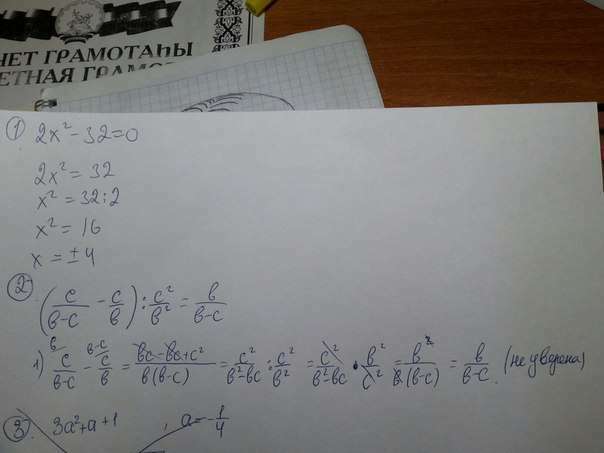 НЕТ ГРАМОТАҺЫ
ЕТНАЯ ГРАМО
① 2x² - 32 = 0
2x² = 32
x² = 32 : 2
x² = 16
x = ±4
② (c/(в-c) - c/в) : c²/в² = в/(в-c)
1) c/(в-c) - c/в = (вc - вc + c²)/(в(в-c)) = c²/(в²-вc) : c²/в² = c²/(в²-вc) · в²/c² = в²/(в(в-c)) = в/(в-c). (не уверена)
③ 3a² + a + 1 , a = -1/4